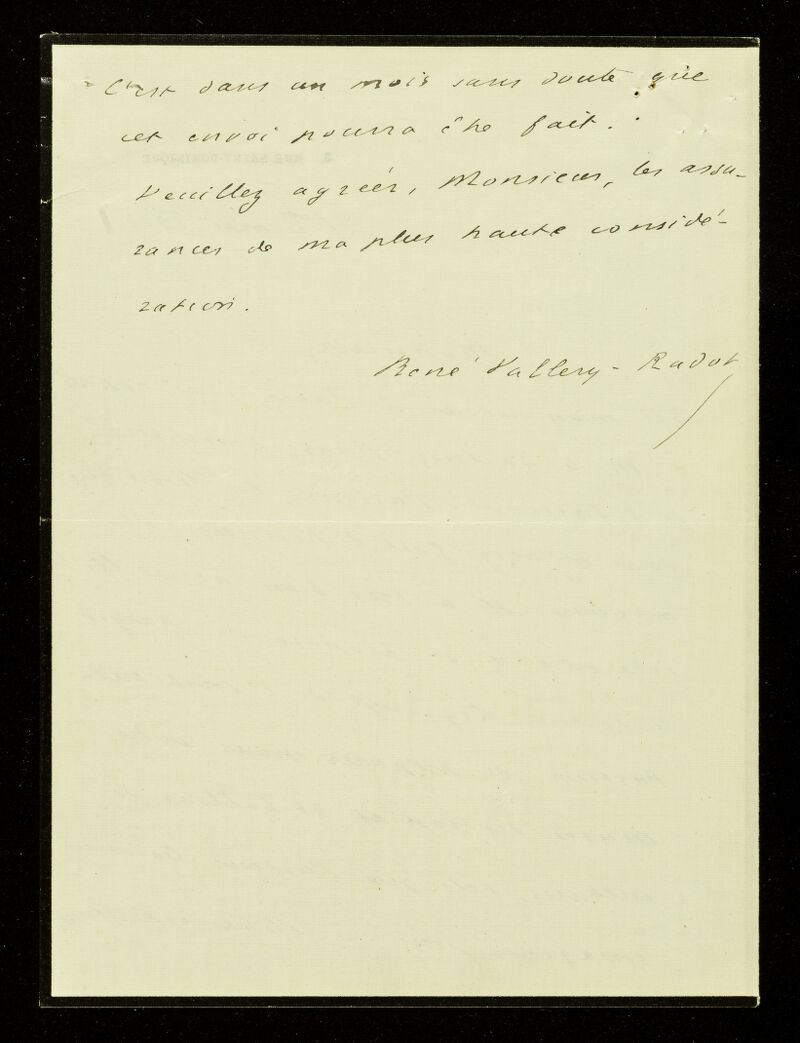 C'est dans un mois sans doute que
cet envoi pourra être fait.
Veuillez agréer, Monsieur, les assu-
rances de ma plus haute considé-
ration.
René Vallery-Radot